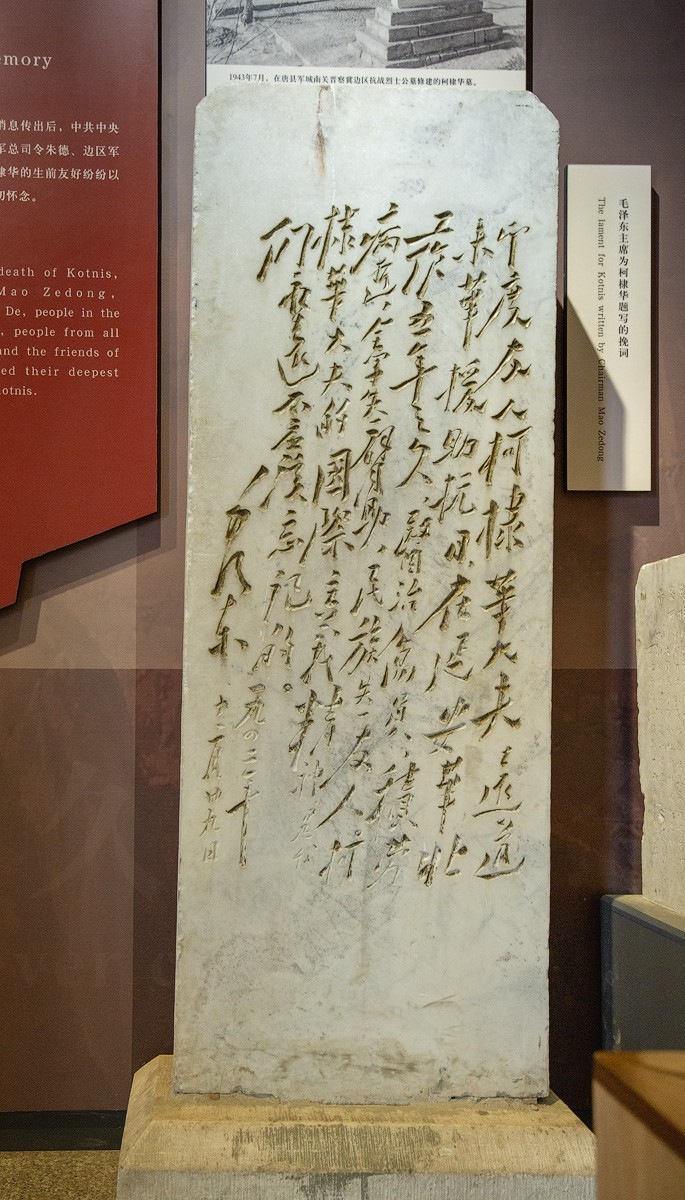 emory
消息传出后，中共中央
军总司令朱德、边区军
棣华的生前友好纷纷以
切怀念。
death of Kotnis,
Mao Zedong,
De, people in the
, people from all
and the friends of
ed their deepest
otnis.
1943年7月，在唐县军城南关晋察冀边区抗战烈士公墓修建的柯棣华墓。
印度友人柯棣華大夫遠道
来華援助抗日，在延安華北
工作五年之久，醫治傷員，積勞
病逝，全軍失一臂助，民族失一友人。柯
棣華大夫的國際主義精神，是我
們永遠不應該忘記的。
毛泽东
一九四二年
十二月廿九日
毛泽东主席为柯棣华题写的挽词
The lament for Kotnis written by Chairman Mao Zedong